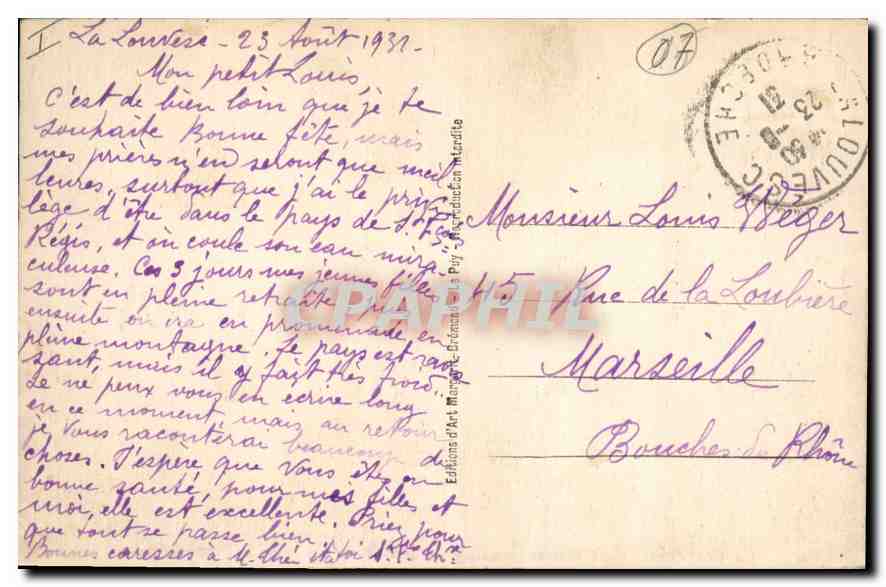 I
La Louvesc - 23 Août 1931 -
Mon petit Louis
C'est de bien loin que je te
souhaite Bonne fête, mais
mes prières n'en seront que meil-
leures, surtout que j'ai le privi-
lège d'être dans le pays de St F.cois
Régis, et où coule son eau mira-
culeuse. Ces 3 jours mes jeunes filles
sont en pleine retraite, puis
ensuite on ira en promenade en
pleine montagne. Le pays est ravis
sant, mais il y fait très froid.
Je ne peux vous en écrire long
en ce moment mais au retour
je vous raconterai beaucoup de
choses. J'espère que vous êtes en
bonne santé, pour mes filles et
moi, elle est excellente. Priez pour
que tout se passe bien.
Bonnes caresses à et toi
Editions d'Art Margerit-Brémond - Le Puy - Reproduction interdite
07
LALOUVESC
ARDECHE
23
31
Monsieur Louis Weger
45 Rue de la Loubière
Marseille
Bouches du Rhône
CPAPHIL